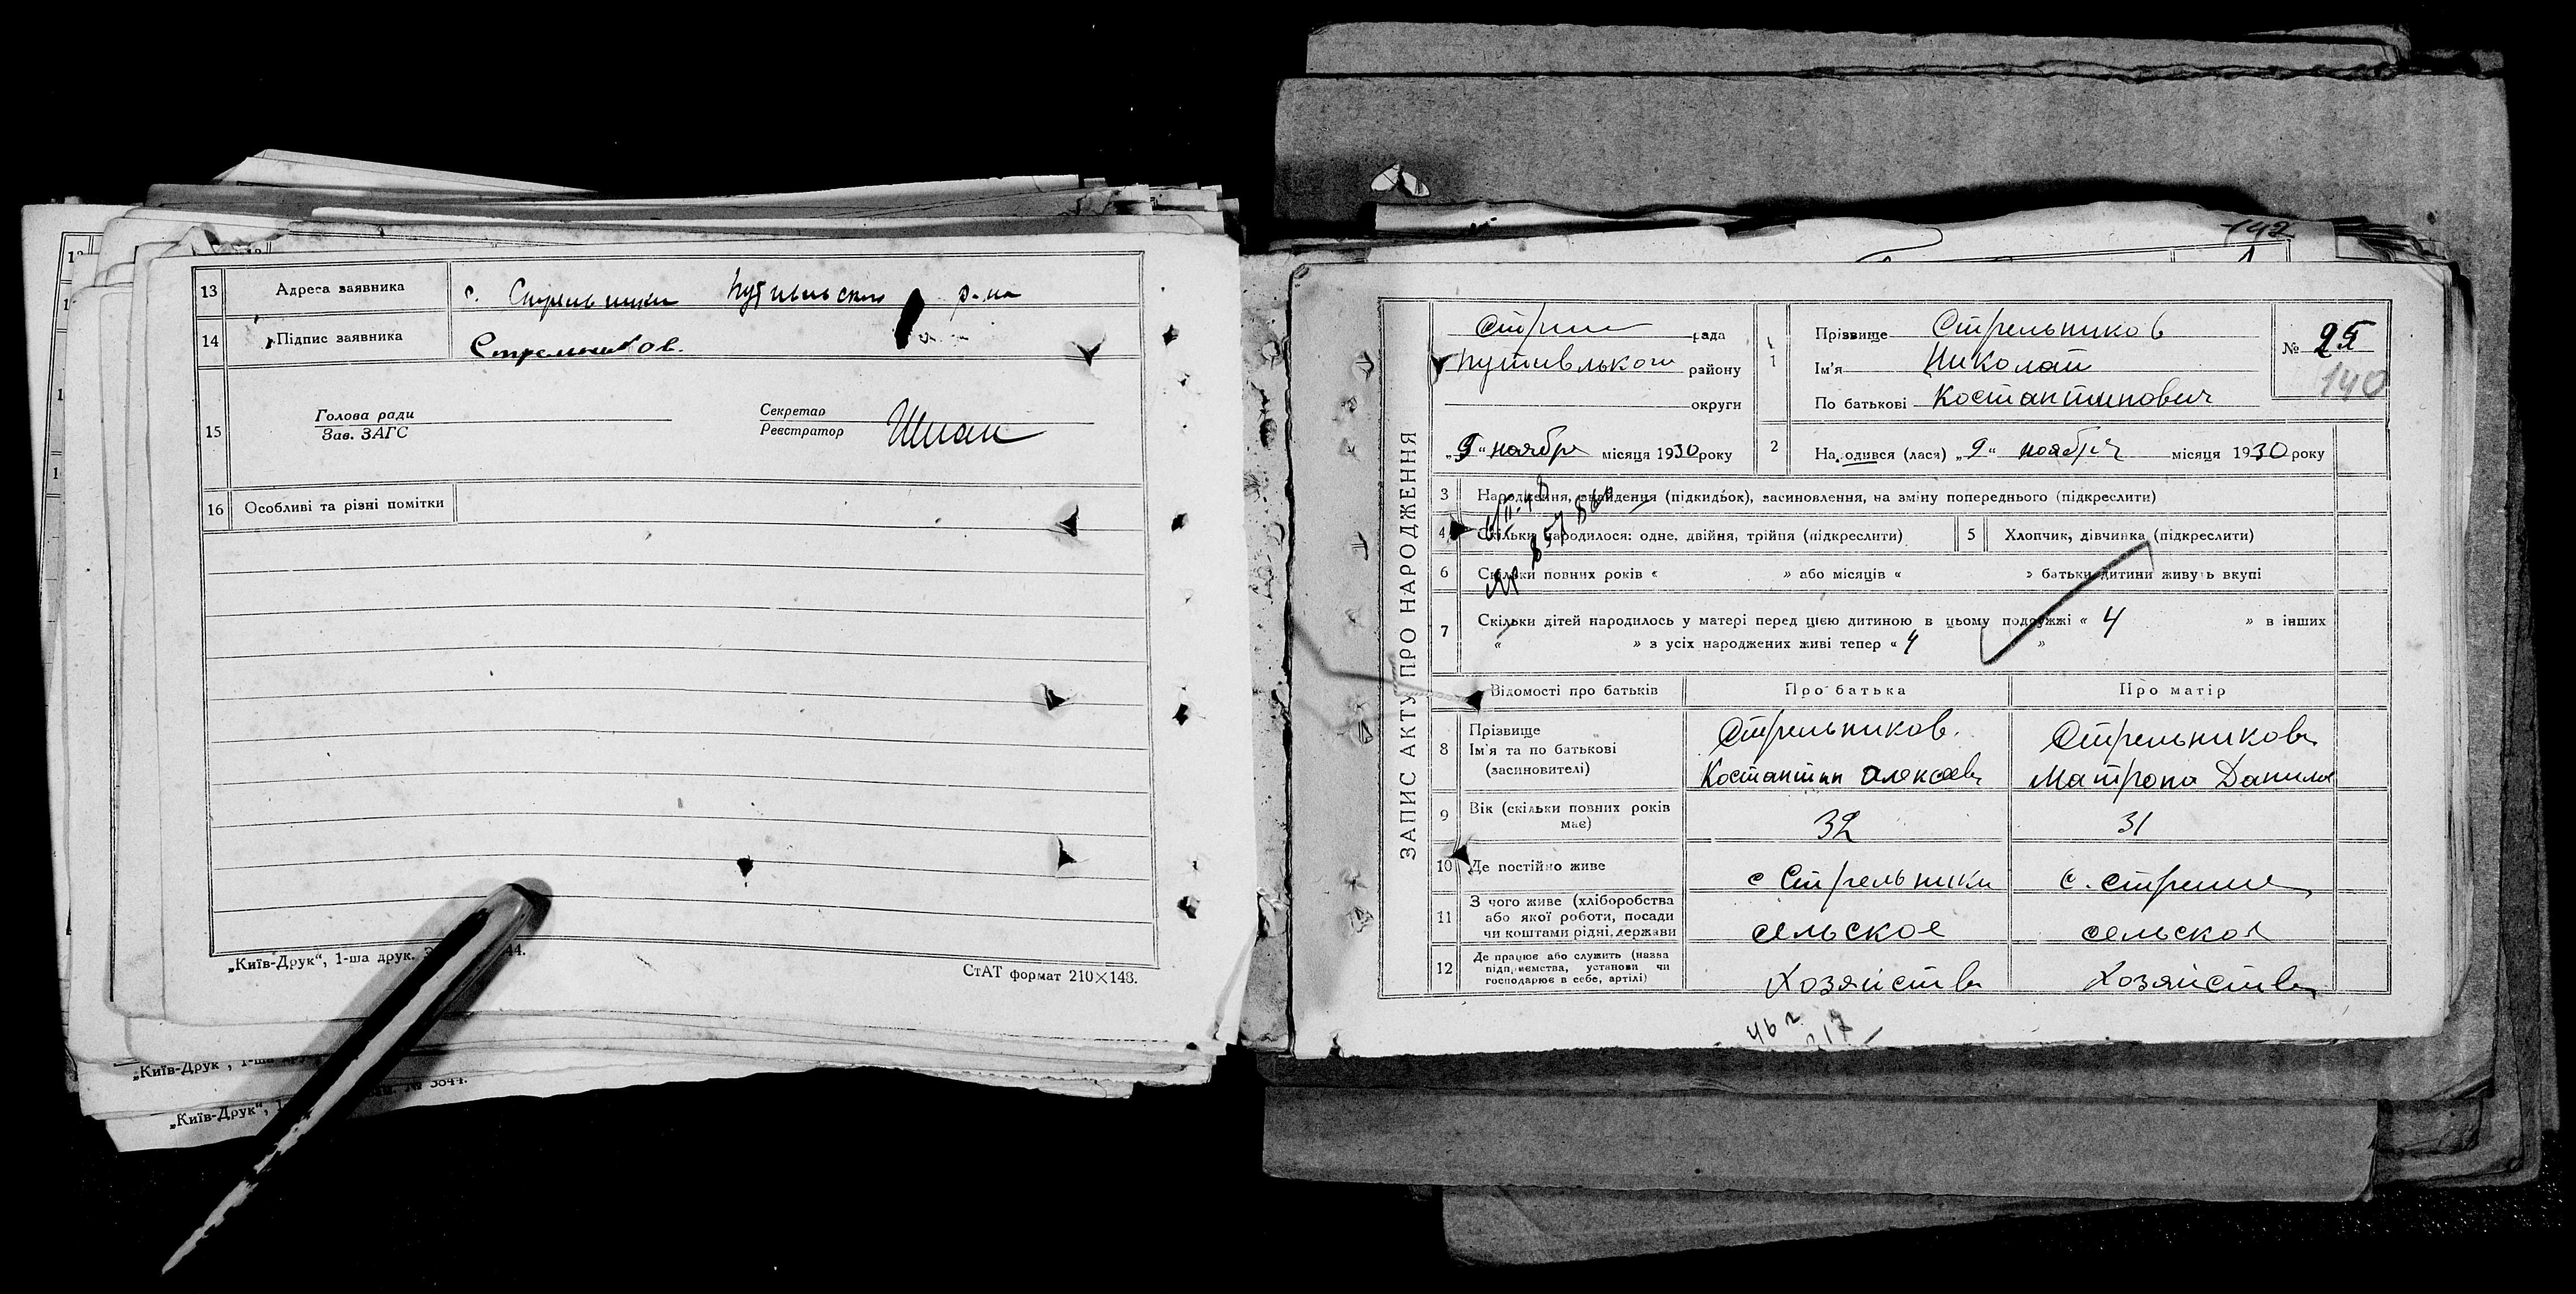 13 Адреса заявника с. Стрельники Путивльского р-на
14 Підпис заявника Стрельников.
15 Голова ради
Зав. ЗАГС
Секретар
Реєстратор
16 Особливі та різні помітки
„Київ-Друк“, 1-ша друк. 44.
СтАТ формат 210×148.
„Київ-Друк“, 1-ша
„Київ-Друк“, № 3844.
142
ЗАПИС АКТУ ПРО НАРОДЖЕННЯ
рада
Путивльского району
округи
„9“ ноября місяця 1930 року
1 Прізвище Стрельников
Ім'я Николай
По батькові Костантинович
№ 25
140
2 Народився (лася) „9“ ноября місяця 1930 року
3 Народження, знайдення (підкидьок), засиновлення, на зміну попереднього (підкреслити)
4 Скільки народилося: одне, двійня, трійня (підкреслити) 5 Хлопчик, дівчинка (підкреслити)
6 Скільки повних років « » або місяців « » батьки дитини живуть вкупі
7 Скільки дітей народилось у матері перед цією дитиною в цьому подружжі « 4 » в інших
« » з усіх народжених живі тепер « 4 »
Відомості про батьків Про батька Про матір
8 Прізвище
Ім'я та по батькові
(засиновителі)
Стрельников.
Костантин Алексеев
Стрельникова
Матрона Данил
9 Вік (скільки повних років має) 32 31
10 Де постійно живе с Стрельники с.
11 З чого живе (хліборобства
або якої роботи, посади
чи коштами рідні, держави
сельское сельское
12 Де працює або служить (назва
підприємства, установи чи
господарює в себе, артілі)
Хозяйство Хозяйство